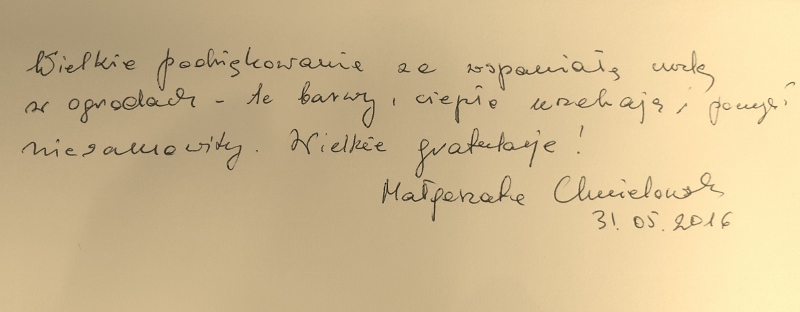 Wielkie podziękowanie za wspaniałą ucztę
w ogrodach - te barwy, ciepło urzekają i pomysł
niesamowity. Wielkie gratulacje!
Małgorzata Chmielowska
31.05.2016